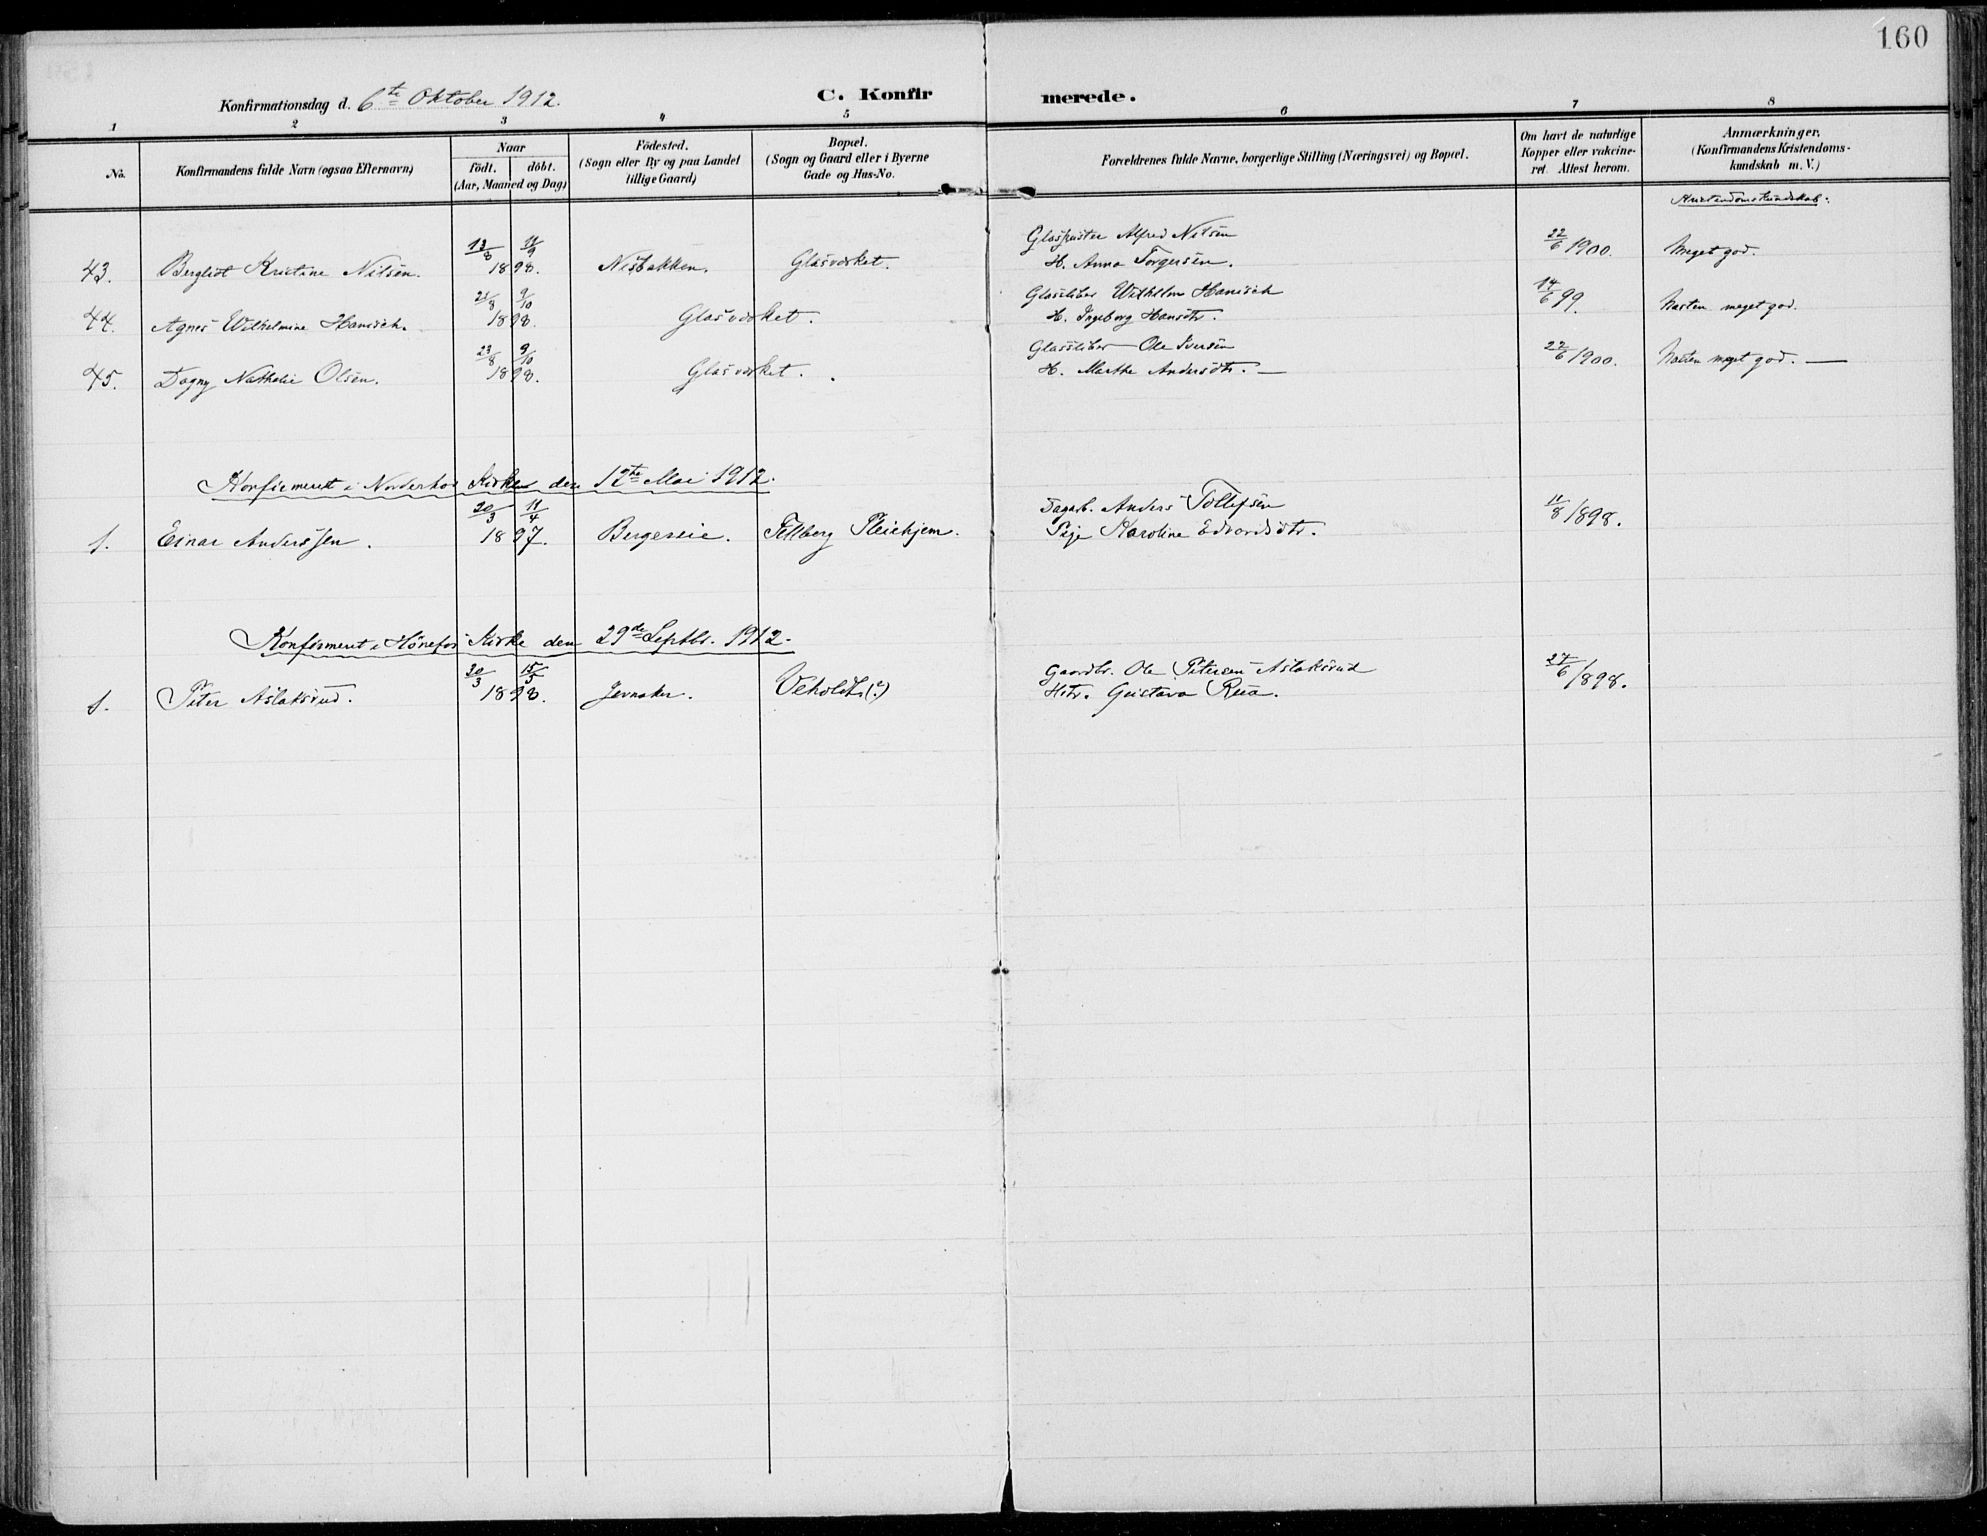 160
Konfirmationsdag d. 6te Oktober 1912.
C. Konfirmerede.
1 2 3 4 5 6 7 8
No.
Konfirmandens fulde Navn (ogsaa Efternavn)
Naar
födt. döbt.
(Aar, Maaned og Dag)
Födested.
(Sogn eller By og paa Landet
tillige Gaard)
Bopæl.
(Sogn og Gaard eller i Byerne
Gade og Hus-No.
Forældrenes fulde Navne, borgerlige Stilling (Næringsvei) og Bopæl.
Om havt de naturlige
Kopper eller vakcine-
ret. Attest herom.
Anmærkninger.
(Konfirmandens Kristendoms-
kundskab m. V.)
Kristendomskundskab.
13/8 11/9 Glaspuster Alfred Nilsen 22/6 1900. Meget god.
43. Bergliot Kristine Nilsen. 1898. Nesbakken. Glasværket. H. Anna Torgersen.
21/8 9/10 Glassliber Wilhelm Hanisch 14/6 99. Næsten meget god.
44. Agnes Wilhelmine Hanisch. 1898. Glasværket. H. Ingeborg Hansdtr.
23/8 9/10 Glassliber Ole Iversen 22/6 1900. Næsten meget god.
45. Dagny Nathalie Olsen. 1898. Glasværket. H. Marthe Andersdtr.
Konfirmeret i Norderhov Kirke den 12te Mai 1912.
20/3 11/4 Dagarb. Anders Tollefsen 11/8 1898.
1. Einar Anderssen. 1897. Bergereie. Fellberg Pleiehjem. Pige Karoline Edvardsdtr.
Konfirmeret i Hønefos Kirke den 29de Septbr. 1912.
30/3 15/5 Gaardbr. Ole Petersen Aslaksrud 27/6 1898.
1. Peter Aslaksrud. 1898. Jevnaker. Veholdt (?) Hstr. Gustava Rua.